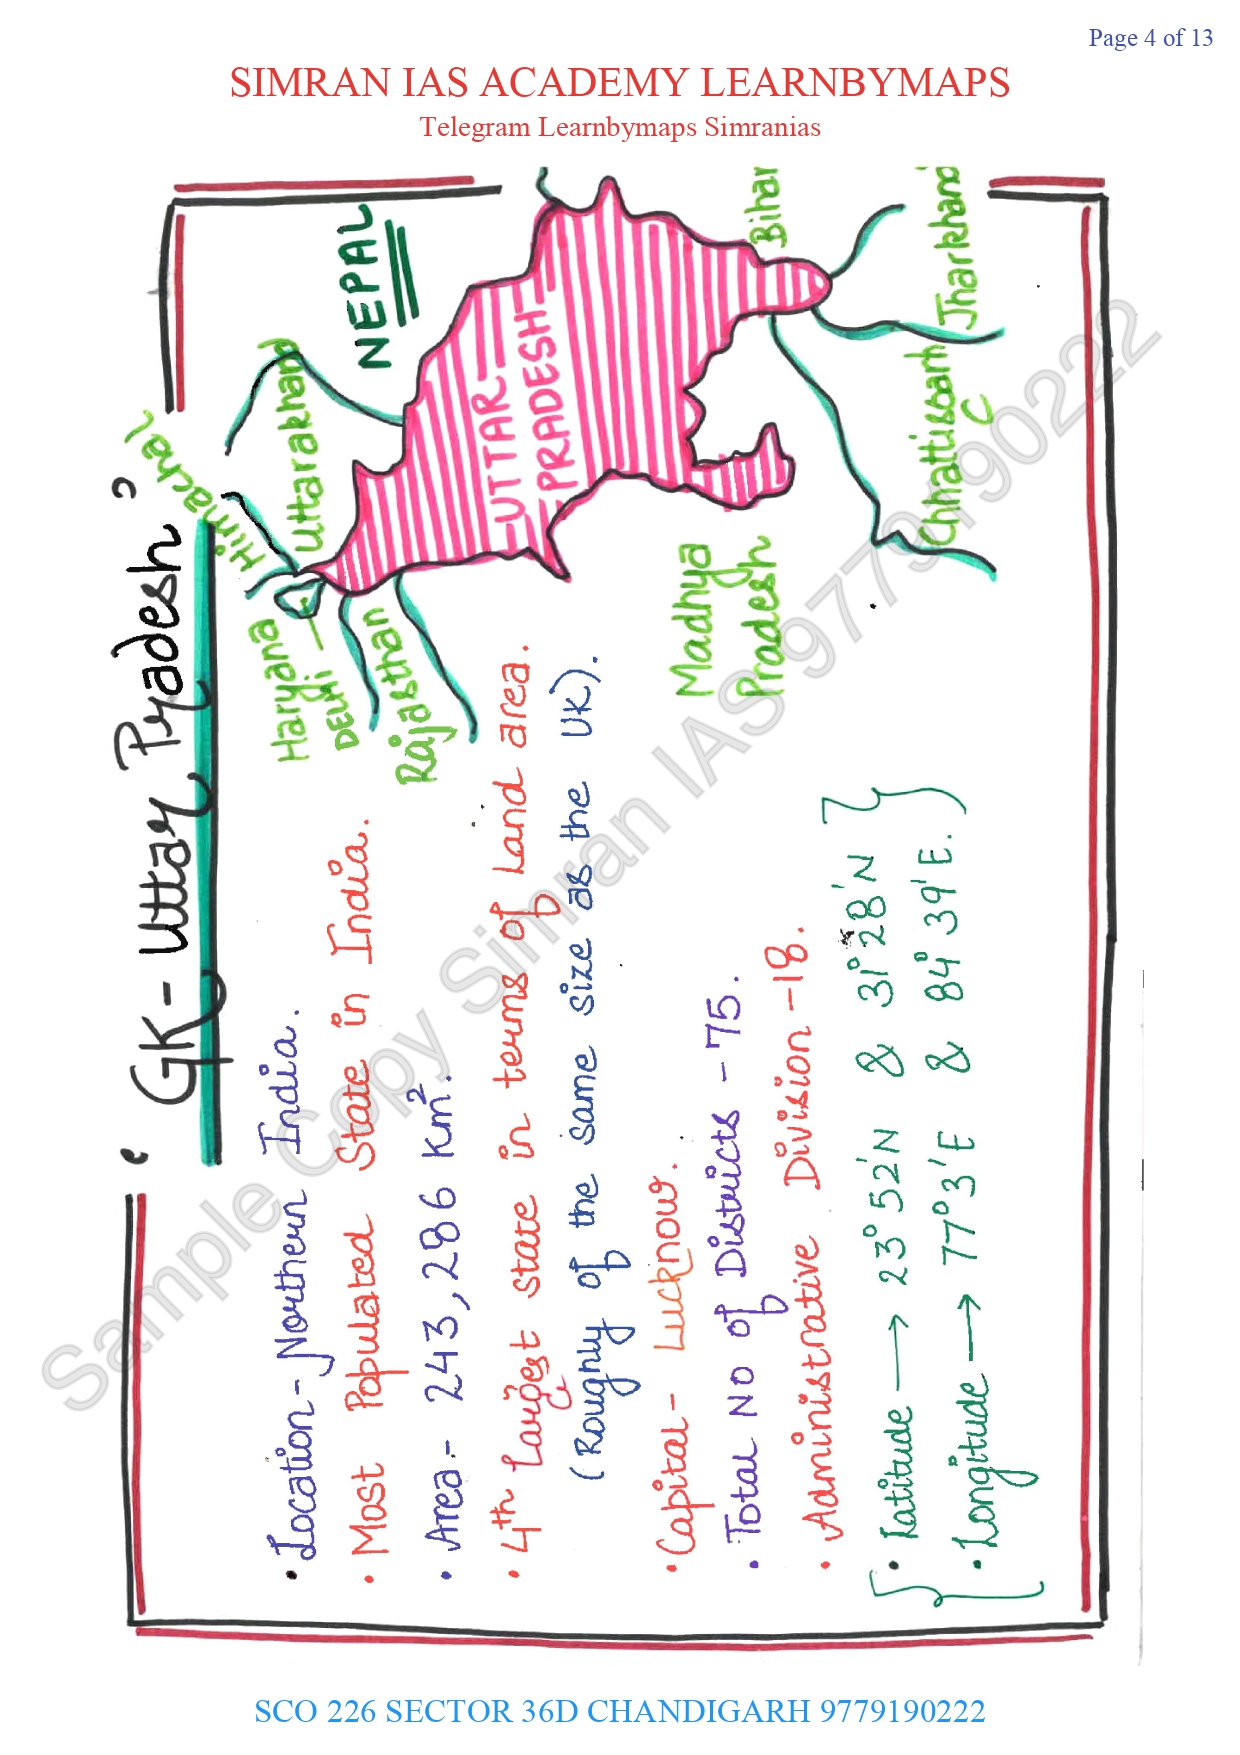 Page 4 of 13
SIMRAN IAS ACADEMY LEARNBYMAPS
Telegram Learnbymaps Simranias
' GK - Uttar Pradesh '
• Location - Northern India.
• Most Populated State in India.
• Area - 243,286 Km².
• 4th Largest state in terms of Land area.
(Roughly of the same size as the UK).
• Capital - Lucknow.
• Total NO of Districts - 75.
• Administrative Division - 18.
• Latitude → 23° 52'N & 31° 28'N
• Longitude → 77° 3'E & 84° 39'E.
Himachal
Uttarakhand
NEPAL
Haryana
DELHI
Rajasthan
UTTAR
PRADESH
Madhya
Pradesh
Bihar
Jharkhand
Chhattissarh
C
Sample Copy Simran IAS 9779190222
SCO 226 SECTOR 36D CHANDIGARH 9779190222